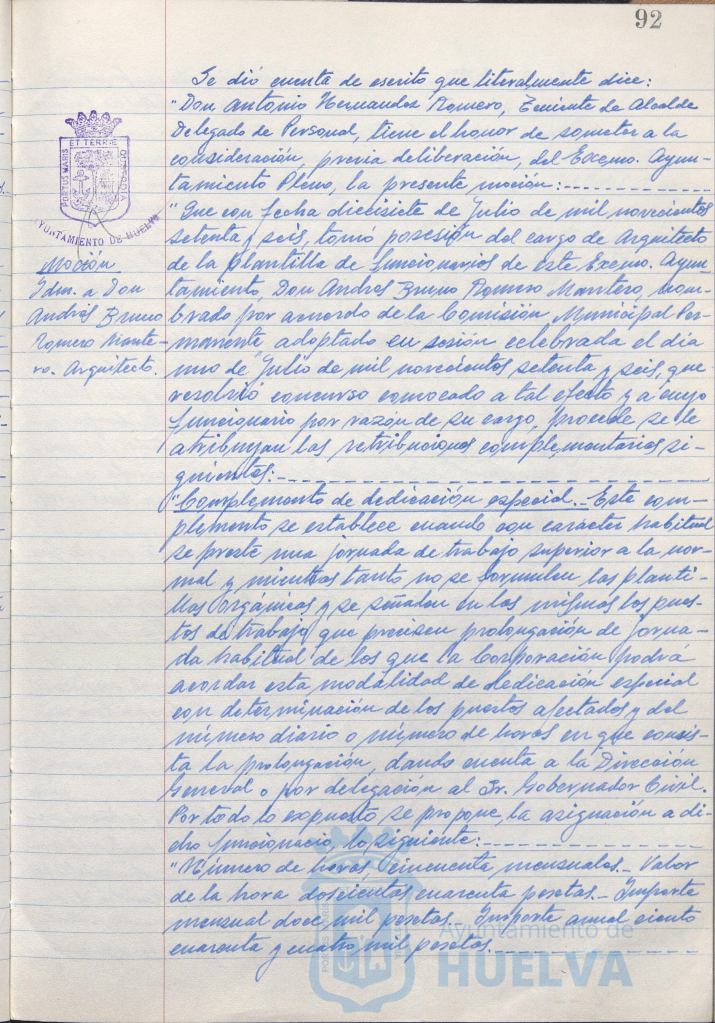 92
Se dió cuenta de escrito que literalmente dice:
"Don Antonio Hernandez Romero, Teniente de Alcalde
Delegado de Personal, tiene el honor de someter a la
consideración, previa deliberación, del Excmo. Ayun-
tamiento Pleno, la presente moción:
"Que con fecha diecisiete de Julio de mil novecientos
setenta y seis, tomó posesión del cargo de Arquitecto
de la plantilla de funcionarios de este Excmo. Ayun-
tamiento, Don Andrés Bruno Romero Mantero, nom-
brado por acuerdo de la Comisión Municipal Per-
manente adoptado en sesión celebrada el día
uno de Julio de mil novecientos setenta y seis, que
resolvió concurso convocado a tal efecto y a cuyo
funcionario por razón de su cargo, procede se le
atribuyan las retribuciones complementarias si-
guientes:-
"Complemento de dedicación especial.- Este com-
plemento se establece cuando con carácter habitual
se preste una jornada de trabajo superior a la nor-
mal y mientras tanto no se formulen las planti-
llas orgánicas y se señalen en las mismas los pues-
tos de trabajo que precisen prolongación de jorna-
da habitual de los que la Corporación podrá
acordar esta modalidad de dedicación especial
con determinación de los puestos afectados y del
número diario o número de horas en que consis-
ta la prolongación, dando cuenta a la Dirección
General o por delegación al Sr. Gobernador Civil.
Por todo lo expuesto se propone, la asignación a di-
cho funcionario, lo siguiente:
"Número de horas, cincuenta mensuales.- Valor
de la hora doscientas cuarenta pesetas.- Importe
mensual doce mil pesetas.- Importe anual ciento
cuarenta y cuatro mil pesetas.
PORTUS MARIS
ET TERRÆ
CUSTODIA
AYUNTAMIENTO DE HUELVA
Moción
Idm. a Don
Andrés Bruno
Romero Mante-
ro. Arquitecto.
Ayuntamiento de
HUELVA